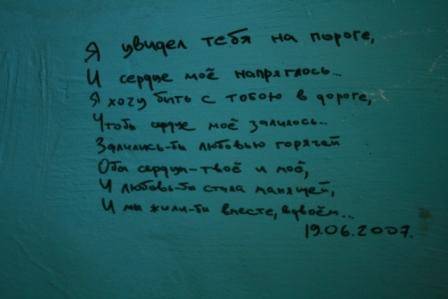 Я увидел тебя на пороге,
И сердце моё напряглось...
Я хочу быть с тобою в дороге,
Чтобы сердце моё залилось...
Залились-бы любовью горячей
Оба сердца-твоё и моё,
И любовь-бы стала манящей,
И мы жили-бы вместе, вдвоём...
19.06.2007.